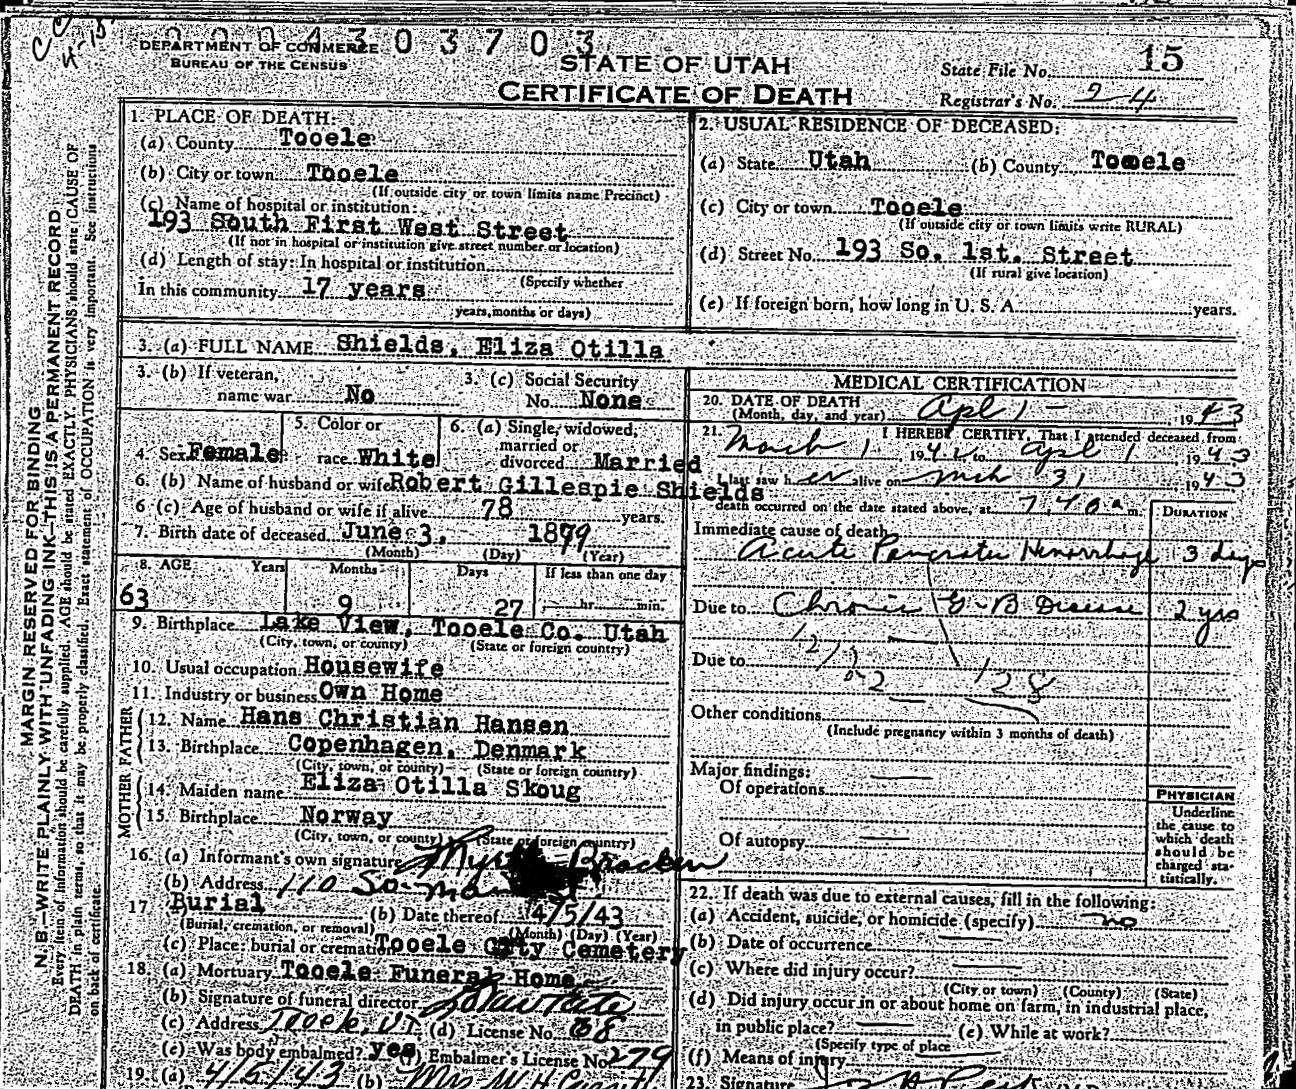 0004303703
DEPARTMENT OF COMMERCE
BUREAU OF THE CENSUS
STATE OF UTAH
CERTIFICATE OF DEATH
State File No. 15
Registrar's No. 24
MARGIN RESERVED FOR BINDING
N.B.—WRITE PLAINLY WITH UNFADING INK—THIS IS A PERMANENT RECORD
Every item of information should be carefully supplied. AGE should be stated EXACTLY. PHYSICIANS should state CAUSE OF
DEATH in plain terms, so that it may be properly classified. Exact statement of OCCUPATION is very important. See instructions
on back of certificate.
1. PLACE OF DEATH:
(a) County Tooele
(b) City or town Tooele
(If outside city or town limits name Precinct)
(c) Name of hospital or institution:
193 South First West Street
(If not in hospital or institution give street number or location)
(d) Length of stay: In hospital or institution
(Specify whether
In this community 17 years
years, months or days)
2. USUAL RESIDENCE OF DECEASED:
(a) State Utah (b) County Tooele
(c) City or town Tooele
(If outside city or town limits write RURAL)
(d) Street No. 193 So. 1st. Street
(If rural give location)
(e) If foreign born, how long in U. S. A. years.
3. (a) FULL NAME Shields, Eliza Otilla
3. (b) If veteran,
name war No
3. (c) Social Security
No. None
4. Sex Female
5. Color or
race White
6. (a) Single, widowed,
married or
divorced Married
6. (b) Name of husband or wife Robert Gillespie Shields
6 (c) Age of husband or wife if alive 78 years.
7. Birth date of deceased June 3, 1879
(Month) (Day) (Year)
8. AGE Years Months Days If less than one day
63 9 27 hr. min.
9. Birthplace Lake View, Tooele Co. Utah
(City, town, or county) (State or foreign country)
10. Usual occupation Housewife
11. Industry or business Own Home
FATHER
12. Name Hans Christian Hansen
13. Birthplace Copenhagen, Denmark
(City, town, or county) (State or foreign country)
MOTHER
14. Maiden name Eliza Otilla Skoug
15. Birthplace Norway
(City, town, or county) (State or foreign country)
16. (a) Informant's own signature Bracken
(b) Address 110 So.
17 Burial (b) Date thereof 4/5/43
(Burial, cremation, or removal) (Month) (Day) (Year)
(c) Place: burial or cremation Tooele City Cemetery
18. (a) Mortuary Tooele Funeral Home
(b) Signature of funeral director
(c) Address Tooele, UT (d) License No. 38
(e) Was body embalmed? yes (f) Embalmer's License No. 279
19. (a) 4/5/43 (b) Mrs W H
MEDICAL CERTIFICATION
20. DATE OF DEATH
(Month, day, and year) Apl 1 - 1943
21. I HEREBY CERTIFY, That I attended deceased from
March 1 1942 to Apl 1 1943
I last saw h er alive on Mch 31 1943
death occurred on the date stated above, at 7.40 a m.
DURATION
Immediate cause of death
Acute Pancreatic Hemorrhage 3 days
Due to Chronic G-B Disease 2 yrs
Due to
128
Other conditions
(Include pregnancy within 3 months of death)
Major findings:
Of operations
Of autopsy
PHYSICIAN
Underline
the cause to
which death
should be
charged sta-
tistically.
22. If death was due to external causes, fill in the following:
(a) Accident, suicide, or homicide (specify) no
(b) Date of occurrence
(c) Where did injury occur?
(City or town) (County) (State)
(d) Did injury occur in or about home on farm, in industrial place,
in public place? (e) While at work?
(Specify type of place
(f) Means of injury
23. Signature